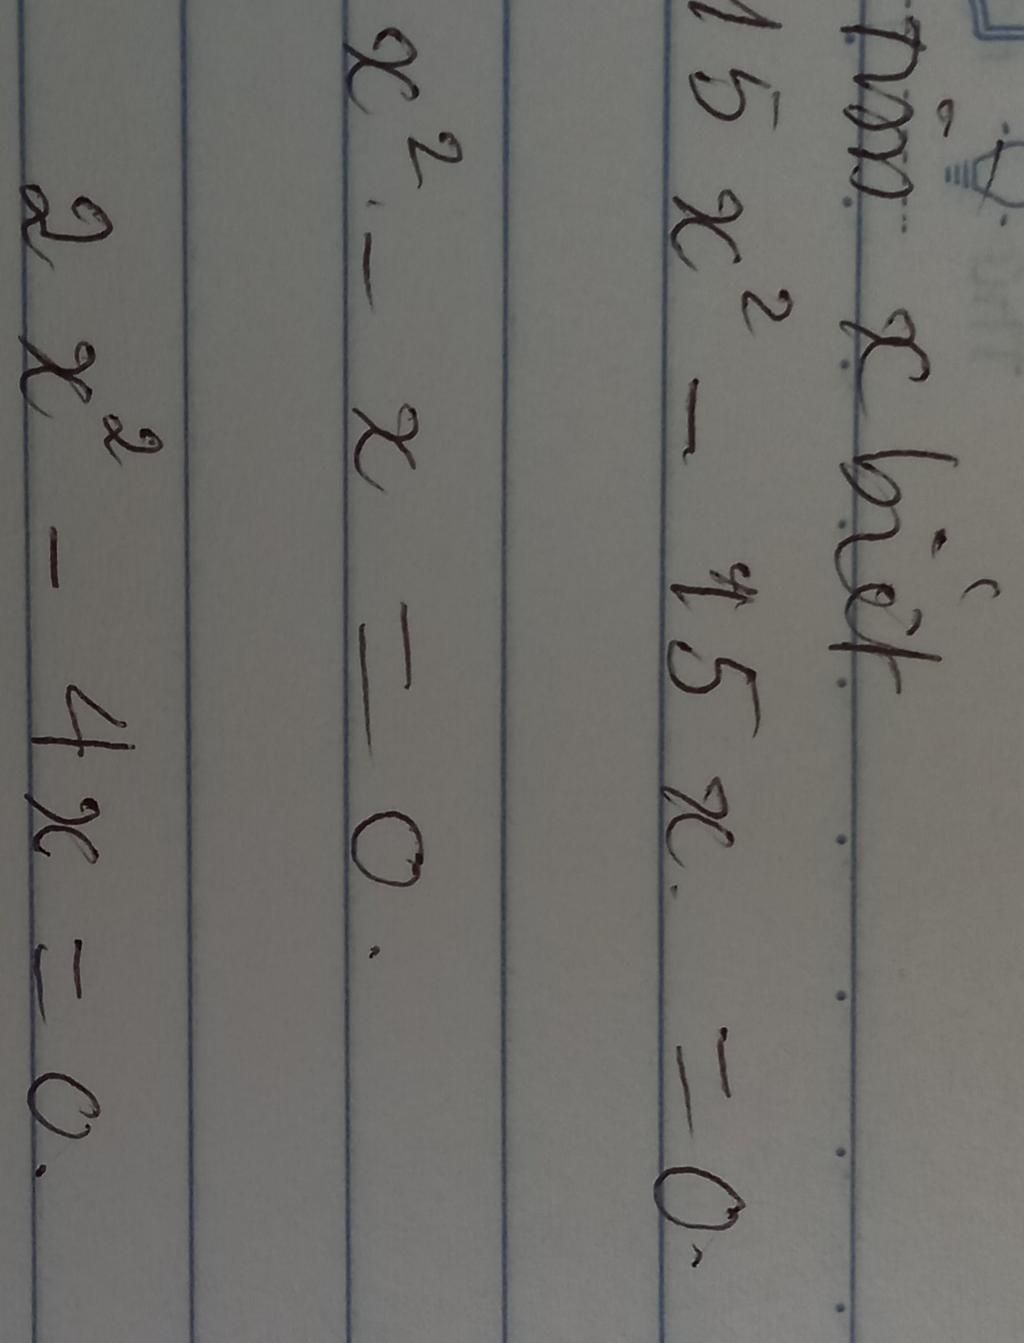 Tìm x biết
15x² - 15x = 0.
x² - x = 0.
2x² - 4x = 0.